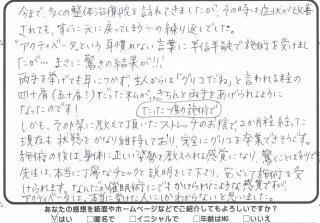 今まで、多くの整体治療院を訪れてきましたが、その時は症状が改善
されても、すぐに元に戻ってしまう…の繰り返しでした。
アクティベータという耳慣れない言葉に半信半疑で施術を受けました
が…まさに驚きの結果が!!
両手を挙げても耳につかず、主人から「グリコだね」と言われる程の
四十肩(五十肩?)だった私が、きちんと両手をあげられるように
なったのです!
たった1度の施術で
しかも、その際に教えて頂いたストレッチのお陰で、2か月程経った
現在も状態をかなり維持しており、完全にグリコを卒業できそうです。
施術の後は、身体に正しい姿勢を教えられる感覚になり、驚くことばかりで
先生は、本当に丁寧なチェックと説明をして下さり、安心して施術を受
けられます。なんだか催眠術にでもかけられたような感覚ですが、
アクティベータは本当に人にしか分からないと思いました。
あなたの感想を紙面やホームページなどでご紹介してもよろしいですか?
はい □匿名で □イニシャルで □年齢はNG □いいえ